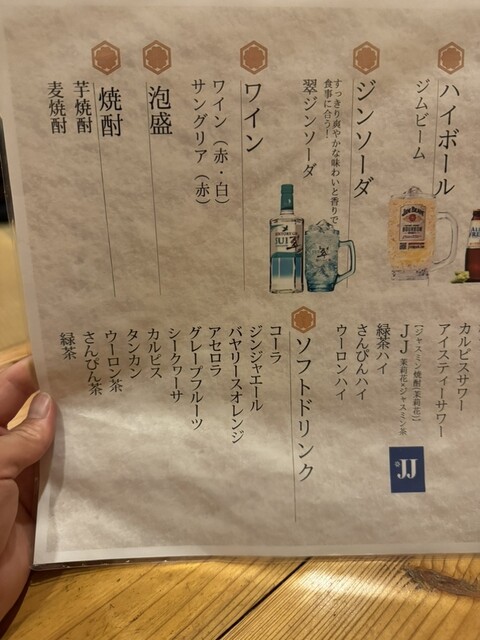 ハイボール
ジムビーム
ジンソーダ
すっきり爽やかな味わいと香りで
食事に合う！
翠ジンソーダ
ワイン
ワイン（赤・白）
サングリア（赤）
泡盛
焼酎
芋焼酎
麦焼酎
JIM BEAM
BOURBON
SUI
翠
カルピスサワー
アイスティーサワー
［ジャスミン焼酎［茉莉花］］
JJ 茉莉花×ジャスミン茶
緑茶ハイ
さんぴんハイ
ウーロンハイ
JJ
ソフトドリンク
コーラ
ジンジャエール
バヤリースオレンジ
アセロラ
グレープフルーツ
シークワーサ
カルピス
タンカン
ウーロン茶
さんぴん茶
緑茶